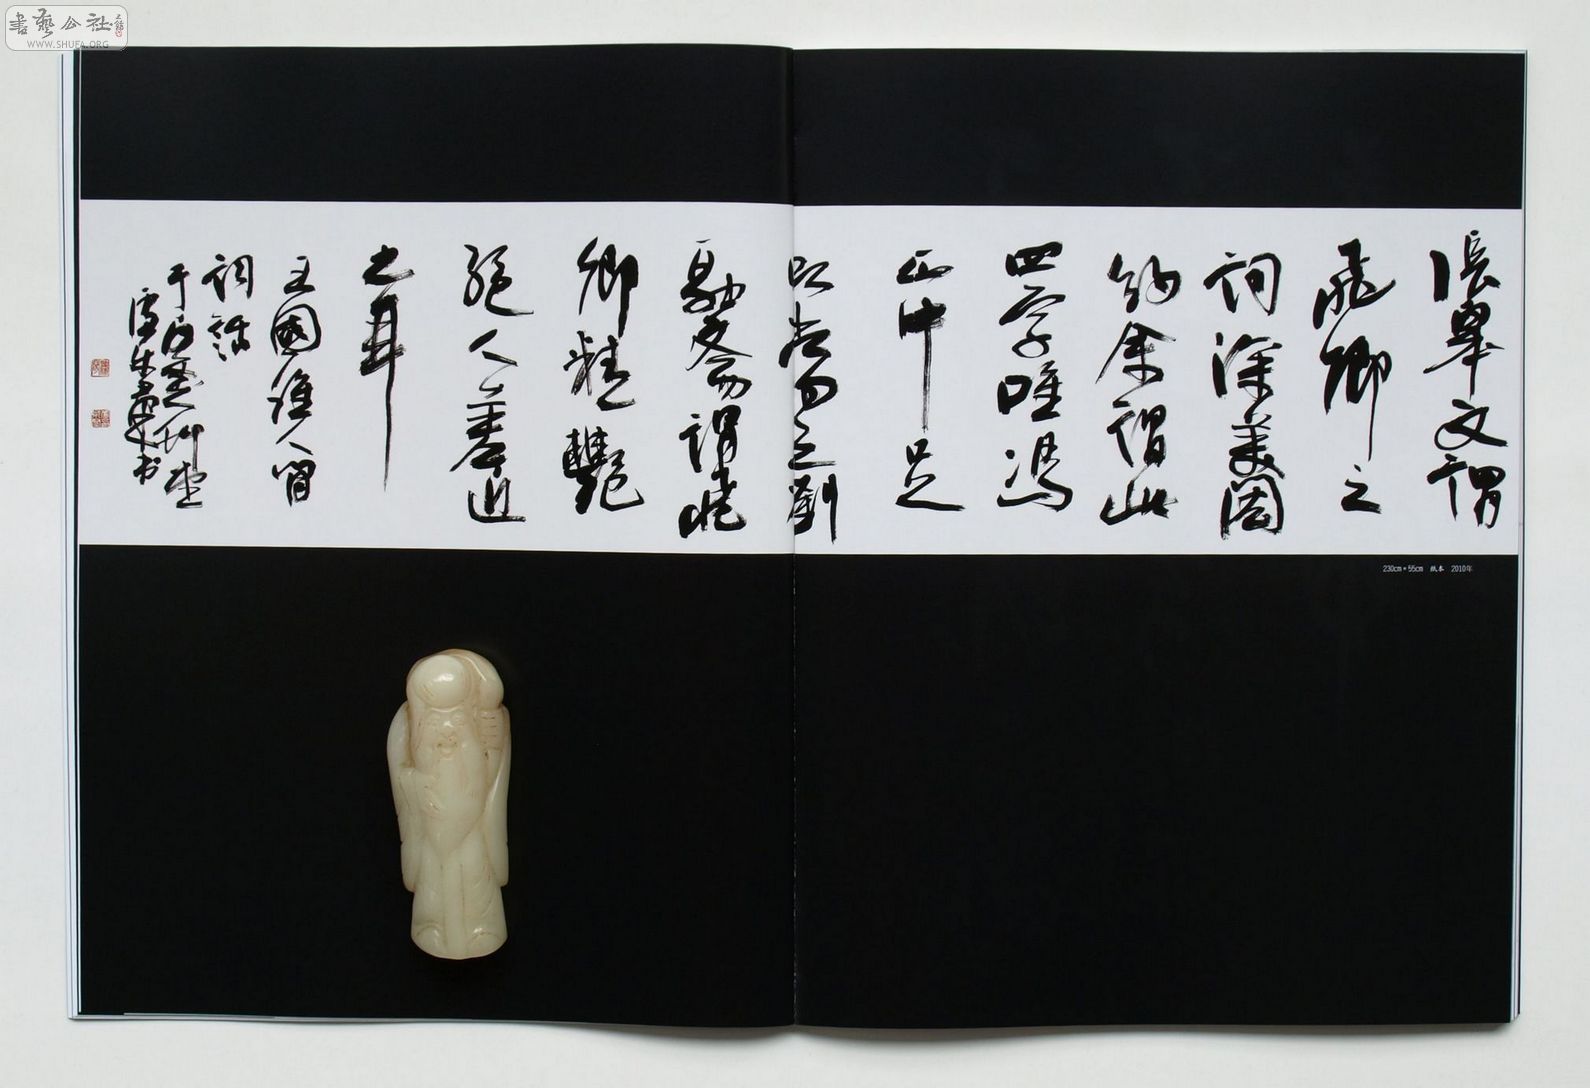 書藝公社
WWW.SHUFA.ORG
張皋文謂
飛卿之
詞深美閎
約余謂此
四字唯馮
正中足
以當之劉
融齋謂飛
卿精艷
絕人差近
之耳
王國維人間
詞話
于
书
230cm×55cm 纸本 2010年